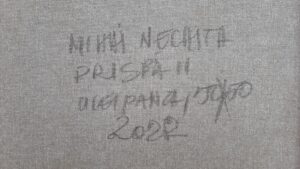 MIHAI NECHITA
PRISPA II
ULEI PANZA, 50X70
2022